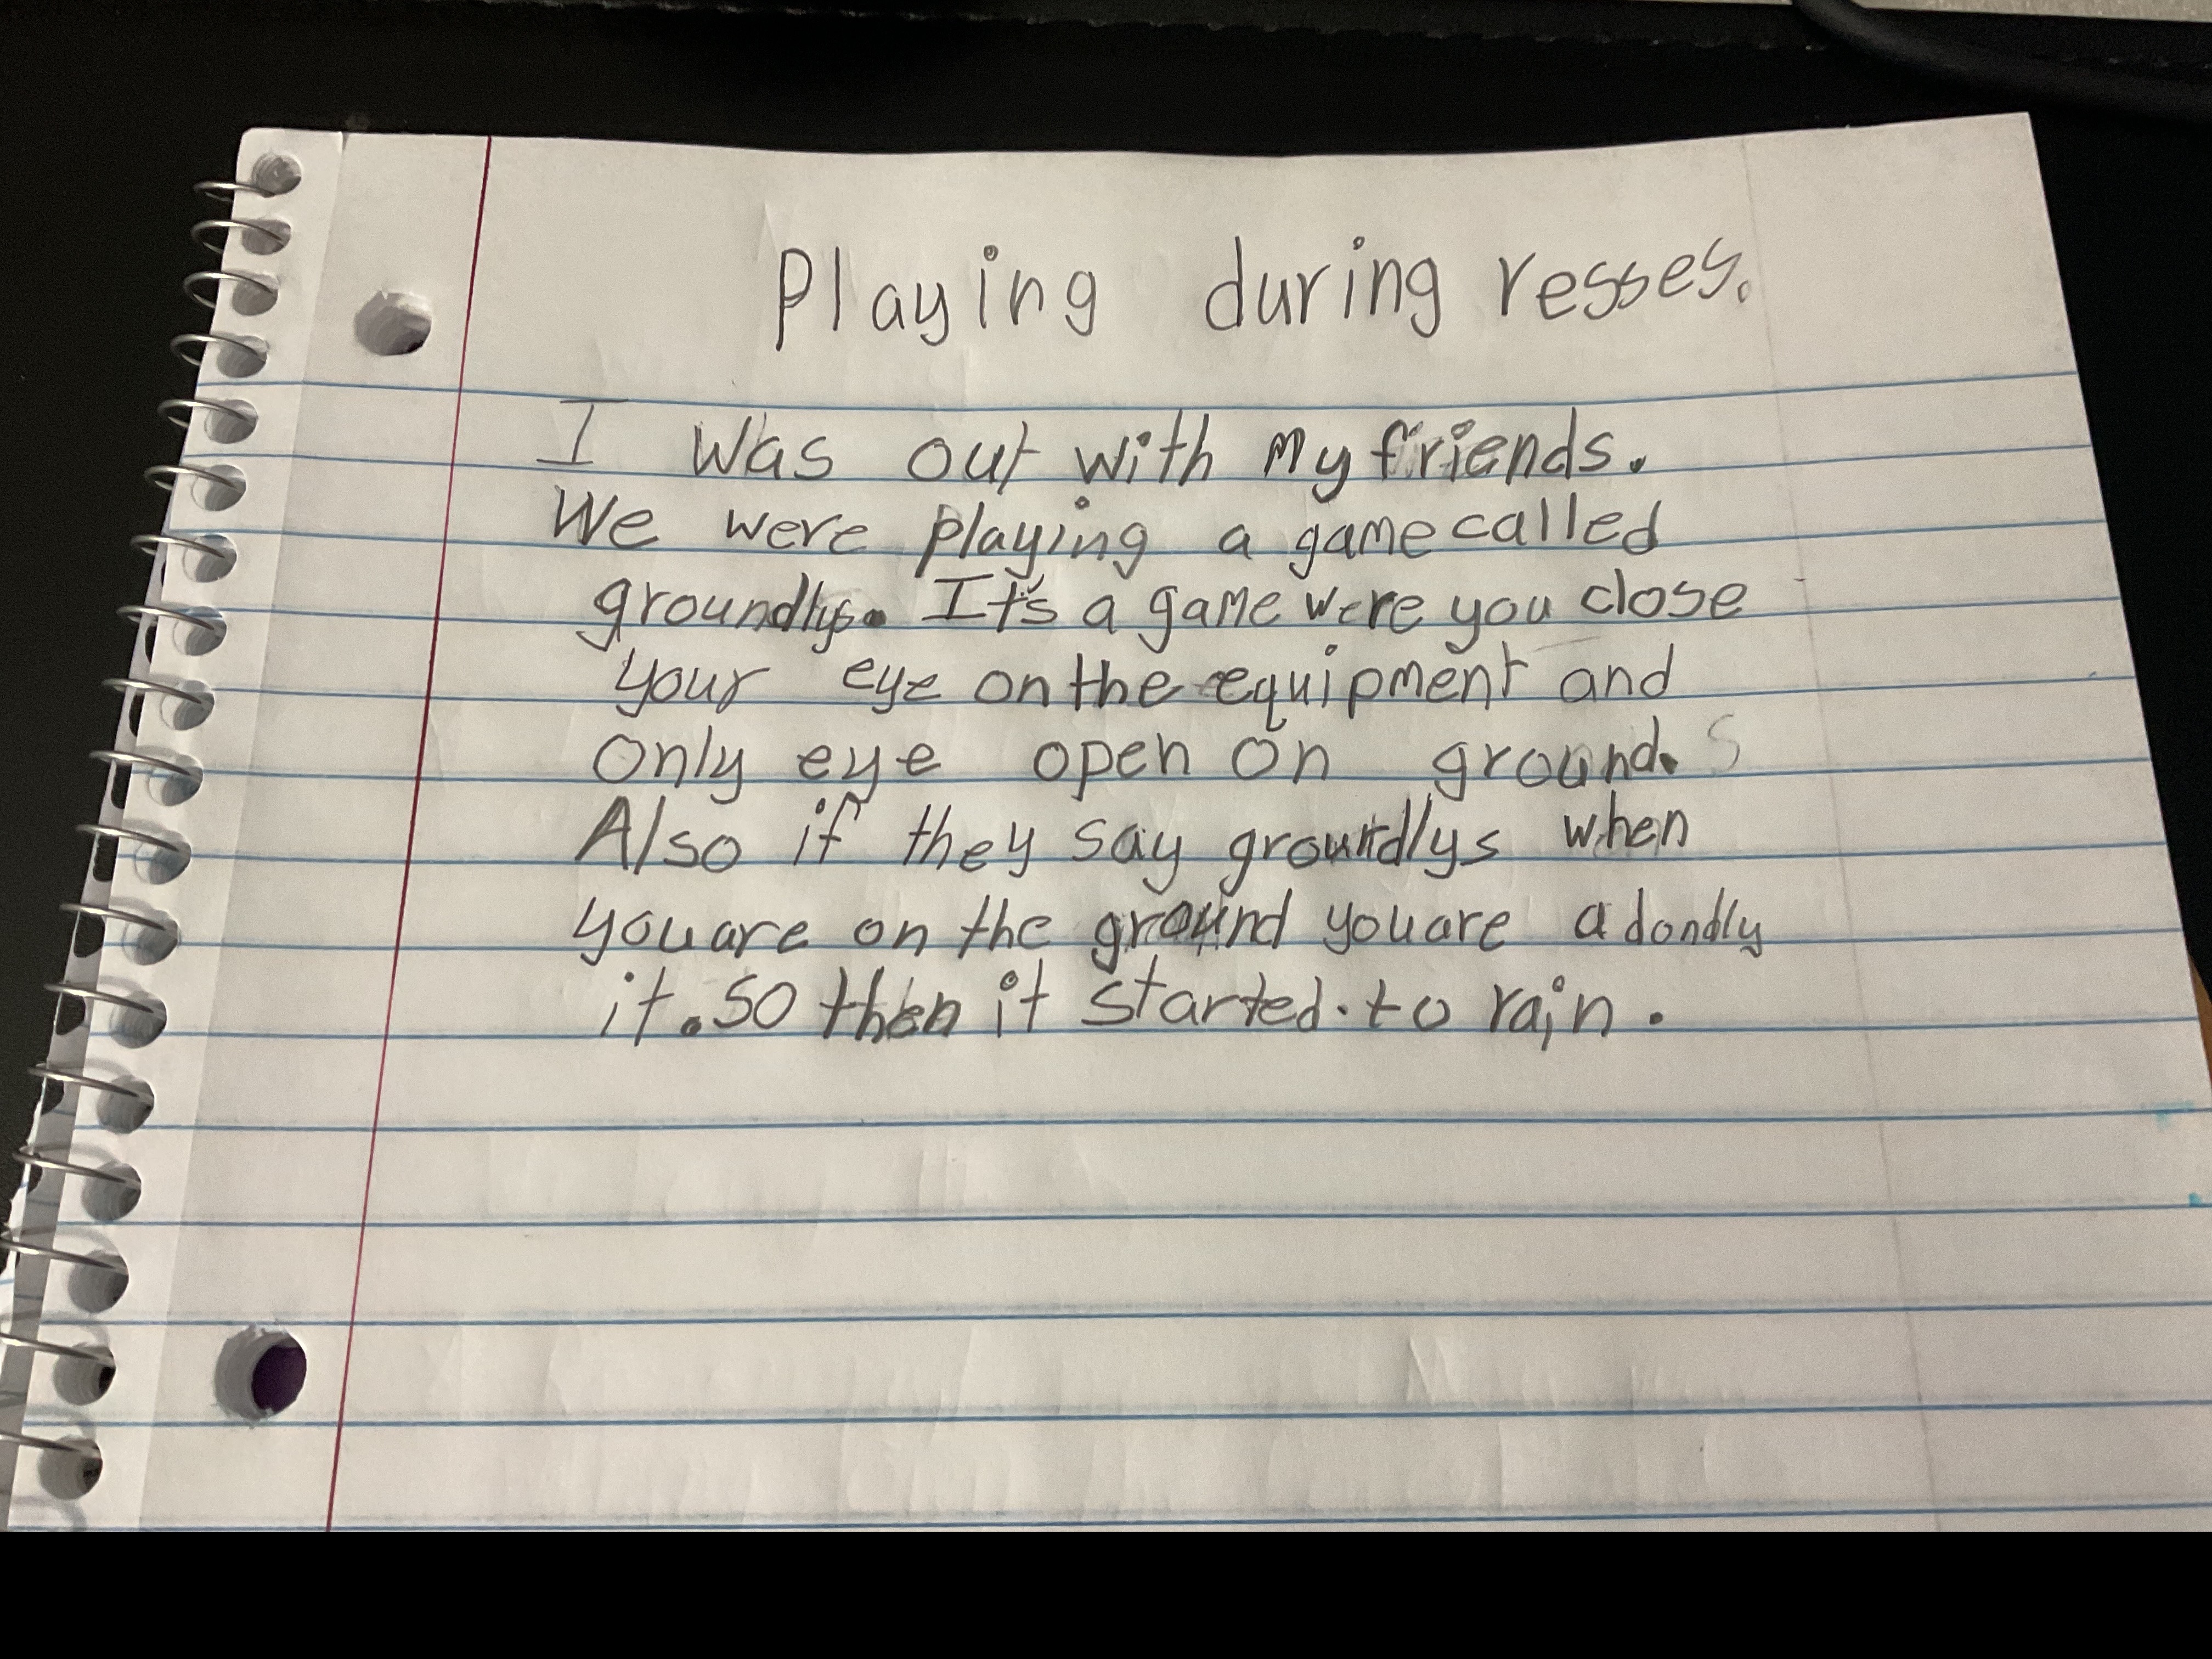 Playing during resses.
I was out with my friends.
We were playing a game called
groundlys. It's a game were you close
your eye on the equipment and
only eye open on ground.
Also if they say groundlys when
you are on the ground you are a dondly
it. So then it started. to rain.